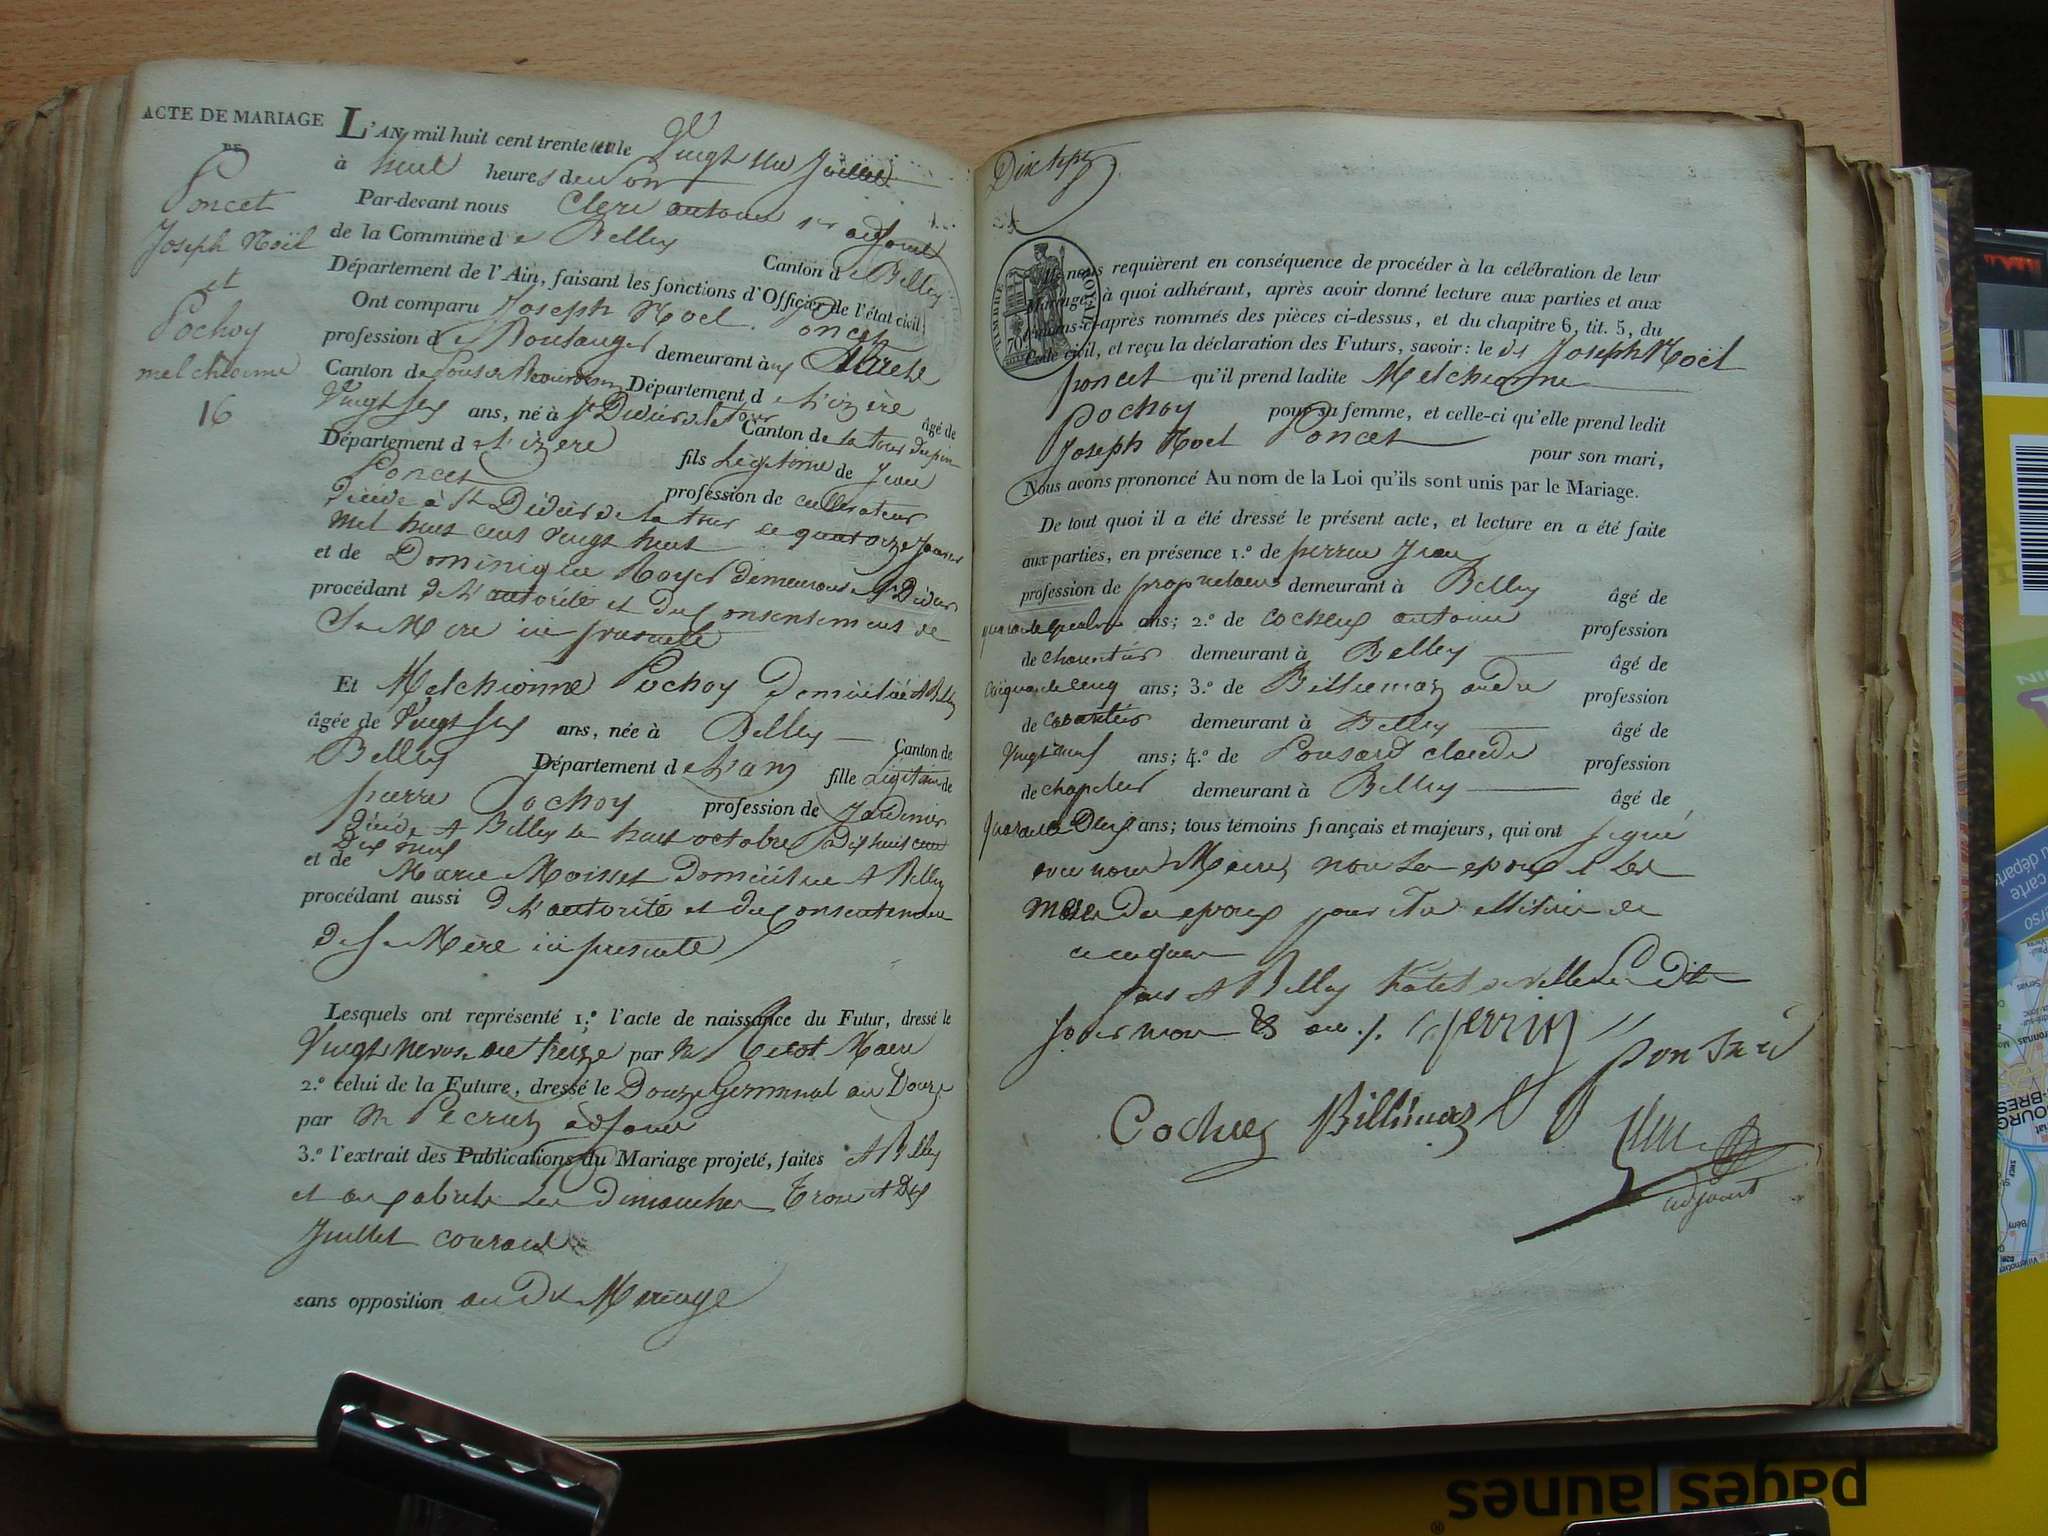 ACTE DE MARIAGE
DE
Poncet
Joseph Noël
et
Pochoy
melchionne
16
L'AN mil huit cent trente un le Vingt un Juillet
à huit heures du soir
Par-devant nous Clerc antoine 1er adjoint
de la Commune de Belley Canton de Belley
Département de l'Ain, faisant les fonctions d'Officier de l'état civil;
Ont comparu Joseph Noel Poncet
profession de Boulanger demeurant aux Abrets
Canton de Pont de Beauvoisin Département de L'izère âgé de
Vingt six ans, né à St Didier de la tour Canton de la tour du pin
Département de L'izere fils Légitime de Jean
Poncet profession de cultivateur
Décédé à St Didier de la tour le quatorze Janvier
mil huit cent vingt huit
et de Dominique Royer demeurant a St Didier
procédant de L'autorité et du Consentement de
Sa Mere ici presente
Et Melchionne Pochoy Domiciliée A Belley
âgée de Vingt six ans, née à Belley Canton de
Belley Département de L'ain fille Légitime de
pierre Pochoy profession de Jardinier
Décédé A Belley le huit octobre Dix huit cent
Dix neuf
et de Marie Moisset Domiciliée A Belley
procédant aussi de L'autorité et du Consentement
de Sa Mère ici presente
Lesquels ont représenté 1.° l'acte de naissance du Futur, dressé le
Vingt nivose an treize par Mr Maire
2.° celui de la Future, dressé le Douze Germinal an Douze
par Mr adjoint
3.° l'extrait des Publications du Mariage projeté, faites A Belley
et aux abrets les Dimanches Trois et Dix
Juillet courant
sans opposition au Dit Mariage
Dix sept
TIMBRE ROYAL
70
Ils nous requièrent en conséquence de procéder à la célébration de leur
Mariage, à quoi adhérant, après avoir donné lecture aux parties et aux
témoins ci-après nommés des pièces ci-dessus, et du chapitre 6, tit. 5, du
Code civil, et reçu la déclaration des Futurs, savoir: le dt Joseph Noël
poncet qu'il prend ladite Melchionne
Pochoy pour sa femme, et celle-ci qu'elle prend ledit
Joseph Noel Poncet pour son mari,
Nous avons prononcé Au nom de la Loi qu'ils sont unis par le Mariage.
De tout quoi il a été dressé le présent acte, et lecture en a été faite
aux parties, en présence 1.° de perrin Jean
profession de proprietaire demeurant à Belley âgé de
ans; 2.° de Cochet antoine profession
de charretier demeurant à Belley âgé de
Cinquante cinq ans; 3.° de Billiemaz andré profession
de demeurant à Belley âgé de
Vingt neuf ans; 4.° de Ponsard claude profession
de chapelier demeurant à Belley âgé de
quarante Deux ans; tous témoins français et majeurs, qui ont signé
avec nous Maire, non les epoux et les
meres des epoux pour être illitérés de
ce enquis
fait A Belley hotel de ville Les Dits
Jour mois & an ./. Perrin
ponsard
Cochet Billiemaz
Clerc
adjoint
pages jaunes